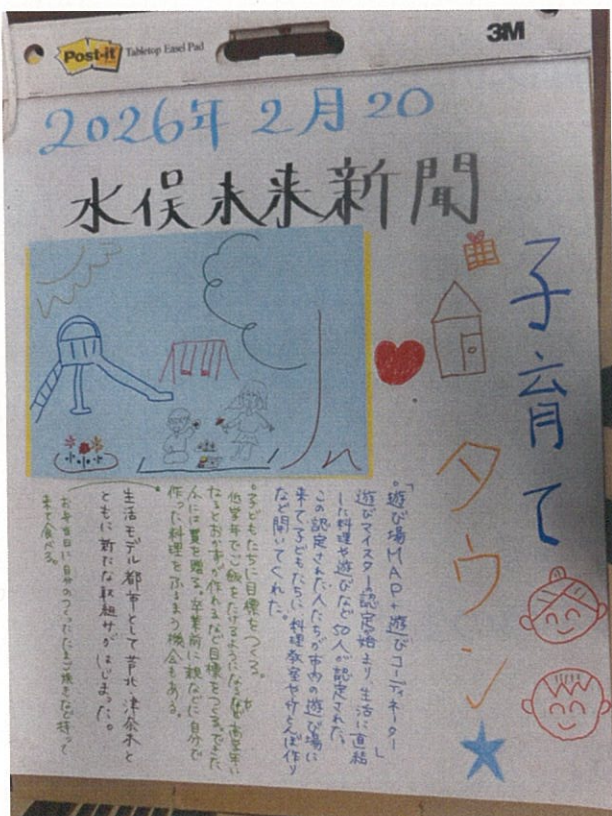 Post-it Tabletop Easel Pad
3M
2026年2月20
水俣未来新聞
子育て
タウン
。「遊び場MAP+遊びコーディネーター」
遊びマイスターの認定が始まり、生活に直結
した料理や遊びなど50人が認定された。
この認定された人たちが市内の遊び場に
来て子どもたちに料理教室や竹とんぼ作り
など開いてくれた。
。子どもたちに目標をつくる。
低学年でご飯をたけるようになるなど高学年に
なるとおかずが作れるなど目標をつくる。できた
人には賞を贈る。卒業前に親などに自分で
作った料理をふるまう機会もある。
生活モデル都市として芦北、津奈木と
ともに新たな取組みがはじまった。
お弁当日に自分のつくったたまご焼きなど持って
来て食べる。